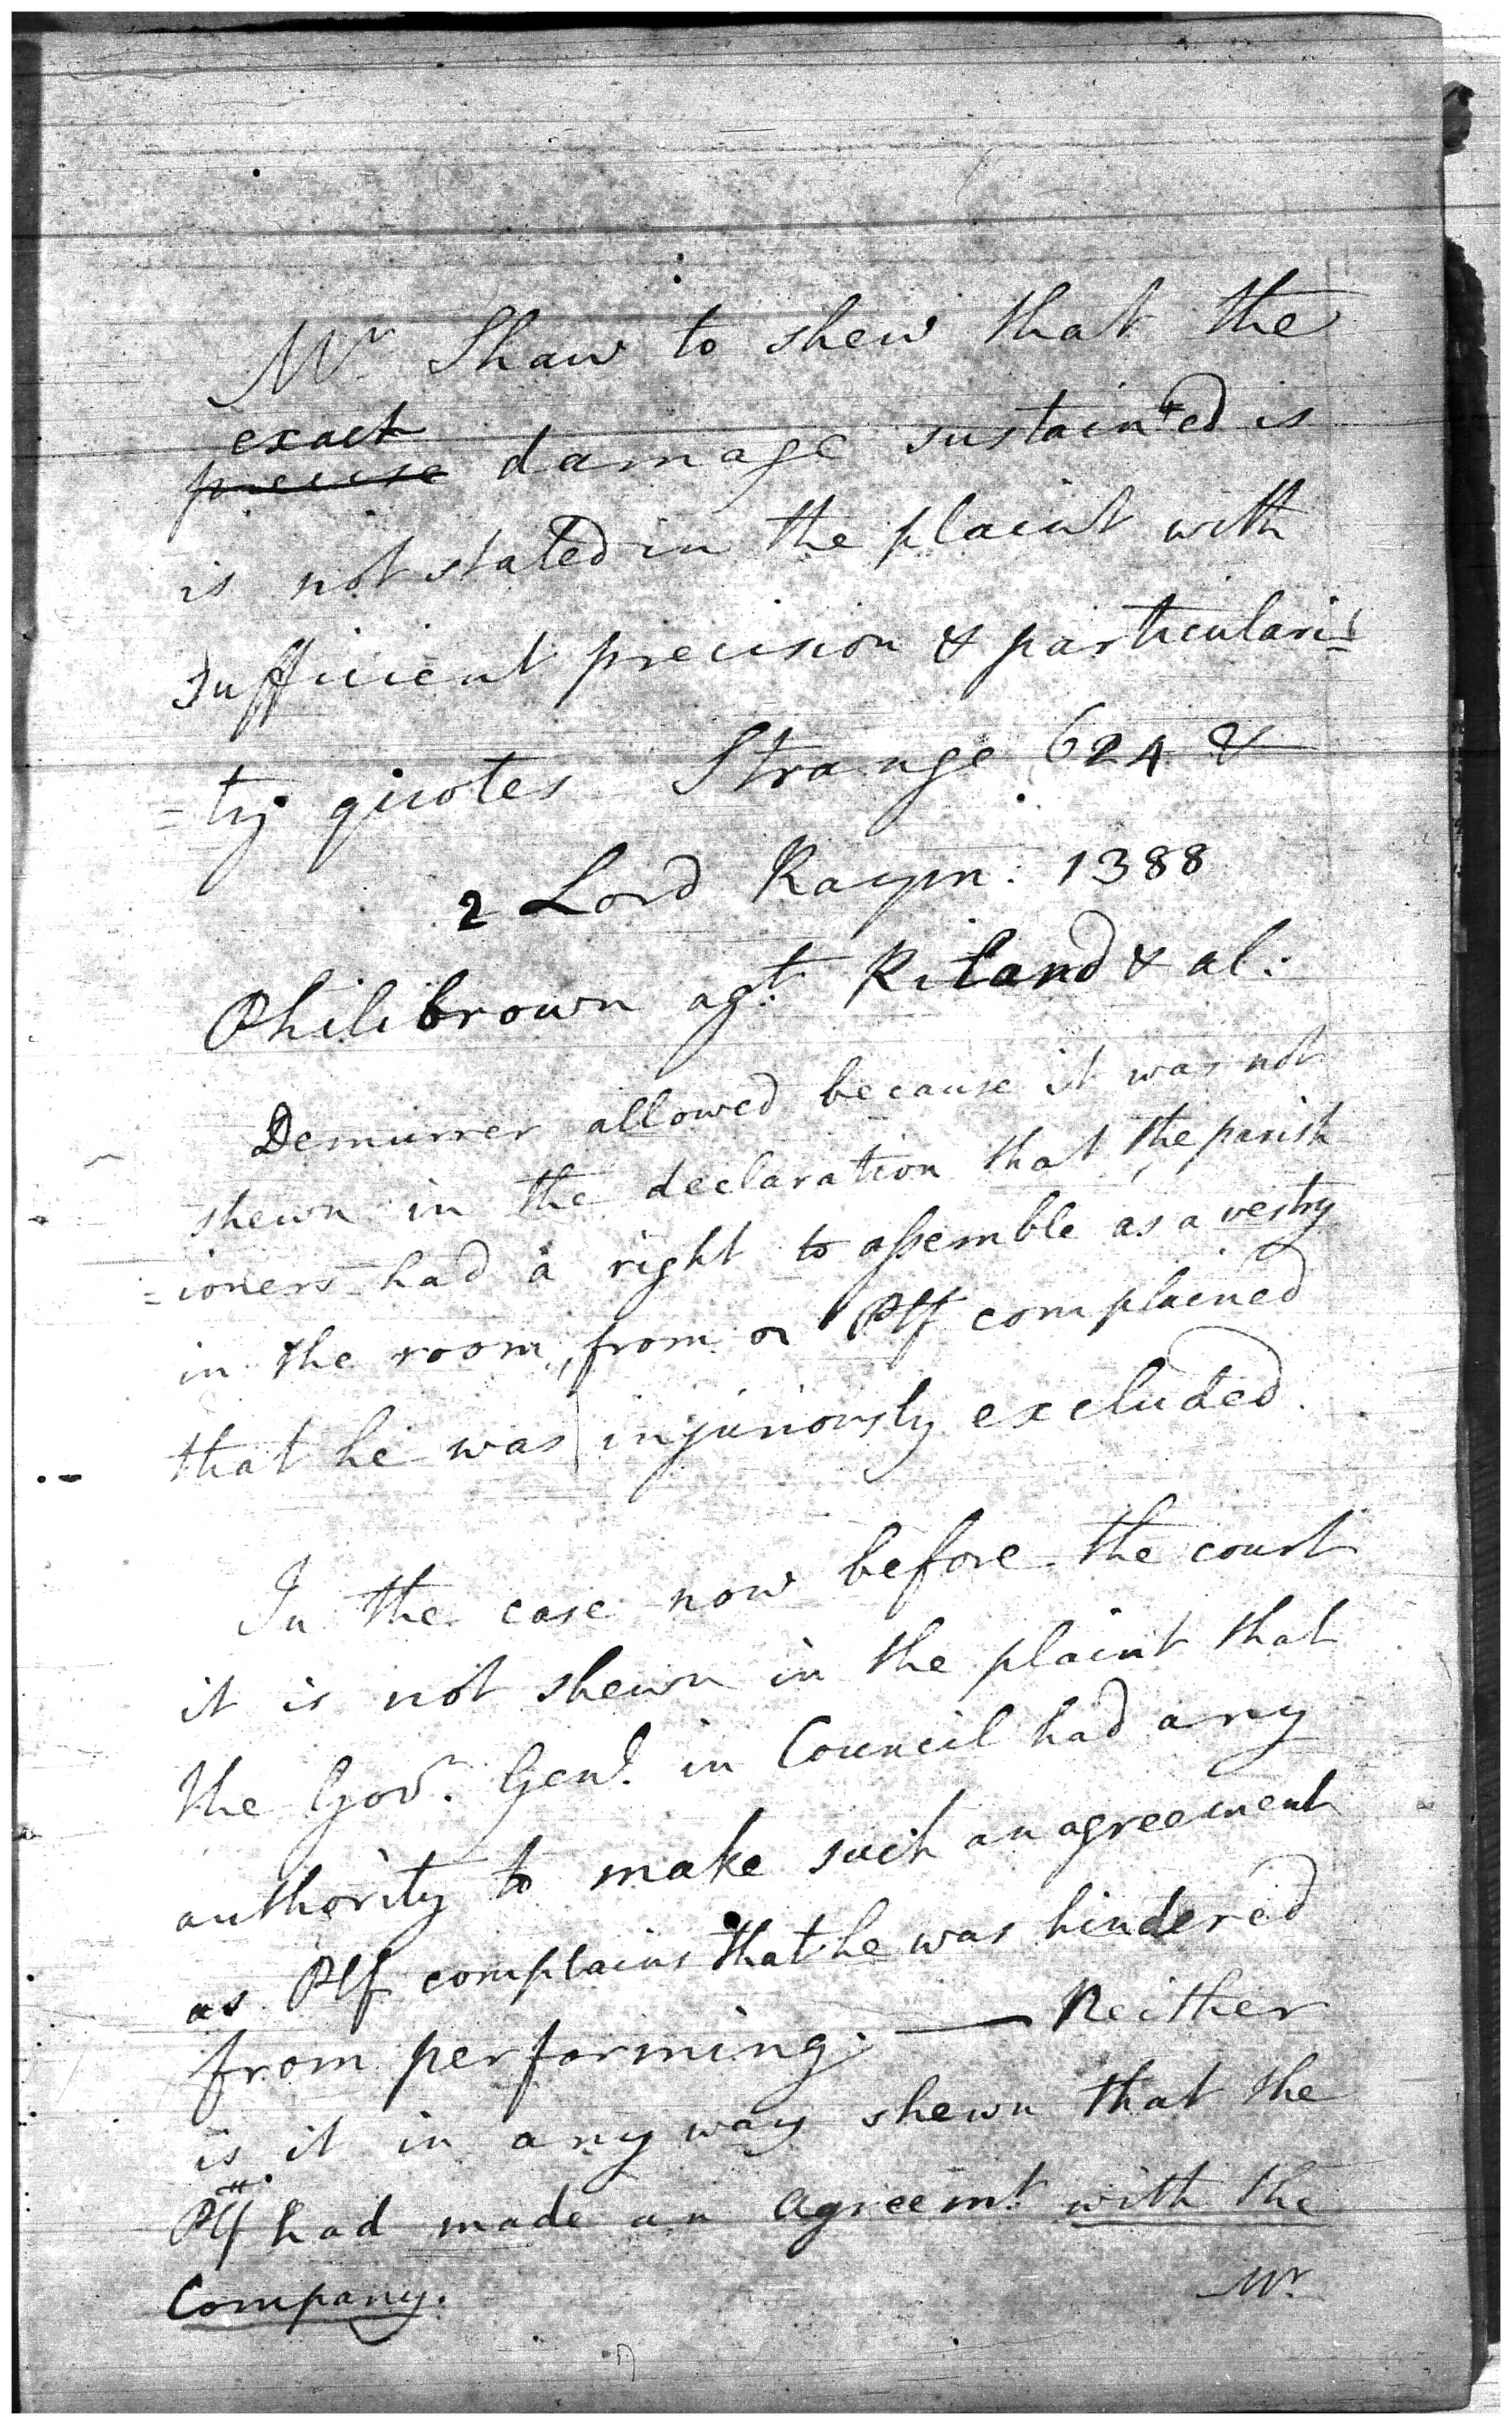 Mr Shaw to shew that the
exact
precise damage sustained is
is not stated in the plaint with
sufficient precision & particulari=
=ty quotes Strange 624 &
2 Lord Raym: 1388
Philibrown agt. Riland & al:
Demurrer allowed because it was not
shewn in the declaration that the parish
=ioners had a right to assemble as a vestry
in the room, from Plf complained
that he was injuriously excluded.
In the case now before the court
it is not shewn in the plaint that
the Govr. Genl. in Council had any
authority to make such an agreement
as Plf complains that he was hindered
from performing. — Neither
is it in any way shewn that the
Plff had made an agreemt. with the
Company.
Mr